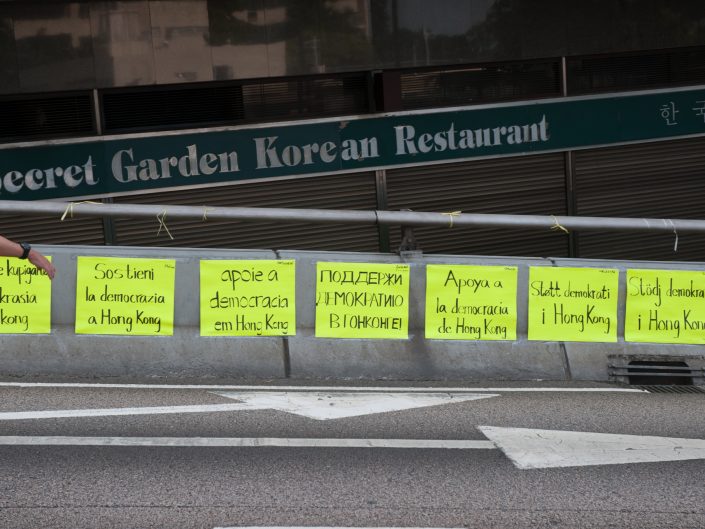 Secret Garden Korean Restaurant 한국
kupigania
krasia
kong
Sostieni
la democrazia
a Hong Kong
apoie a
democracia
em Hong Kong
ПОДДЕРЖИ
ДЕМОКРАТИЮ
В ГОНКОНГЕ!
Apoya a
la democracia
de Hong Kong
Støtt demokrati
i Hong Kong
Stödj demokra
i Hong Kong